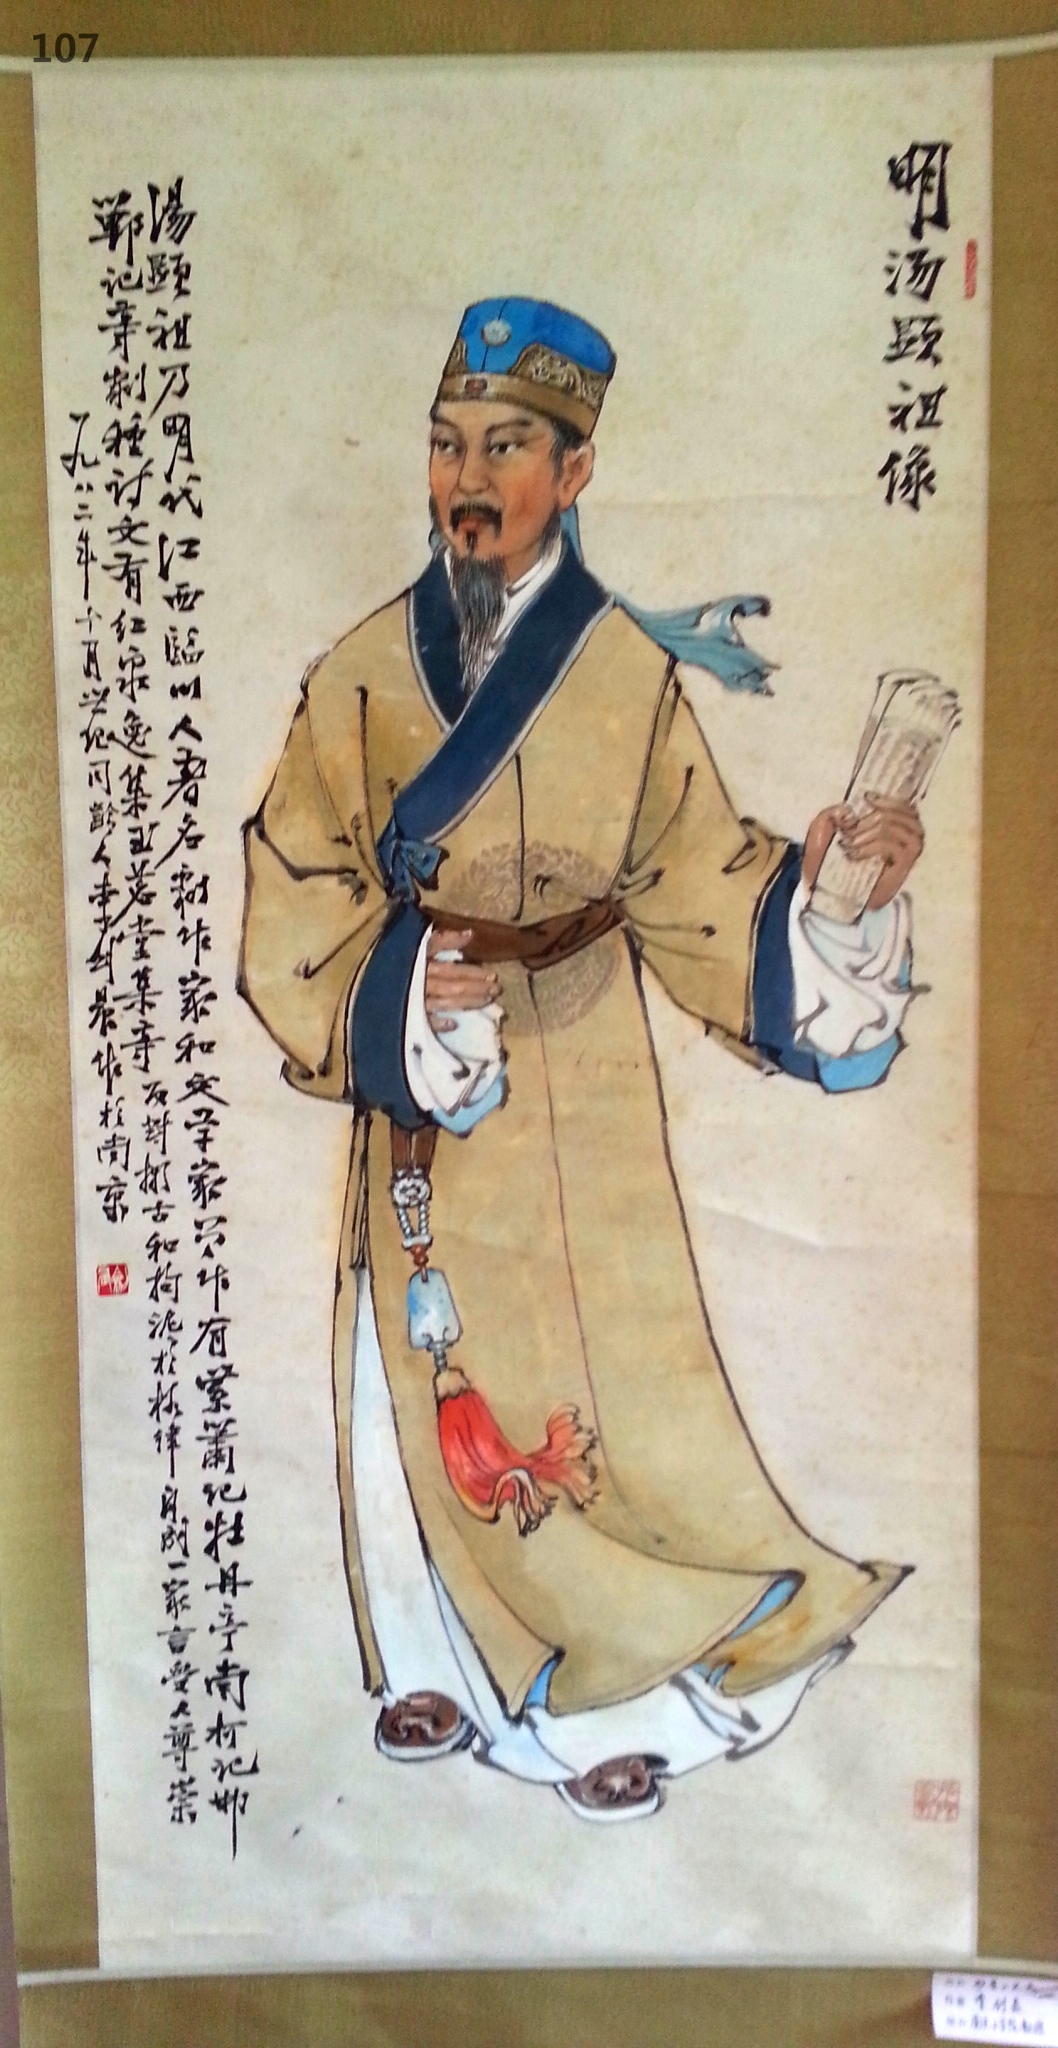 107
明汤顕祖像
湯顕祖乃明代江西臨川人著名劇作家和文学家其作有紫簫记牡丹亭南柯记邯
鄲记等劇種詩文有红泉逸集玉茗堂集等反对拟古和拘泥於格律自成一家言受人尊崇
一九八二年十月世纪同龄人李剑晨作於南京